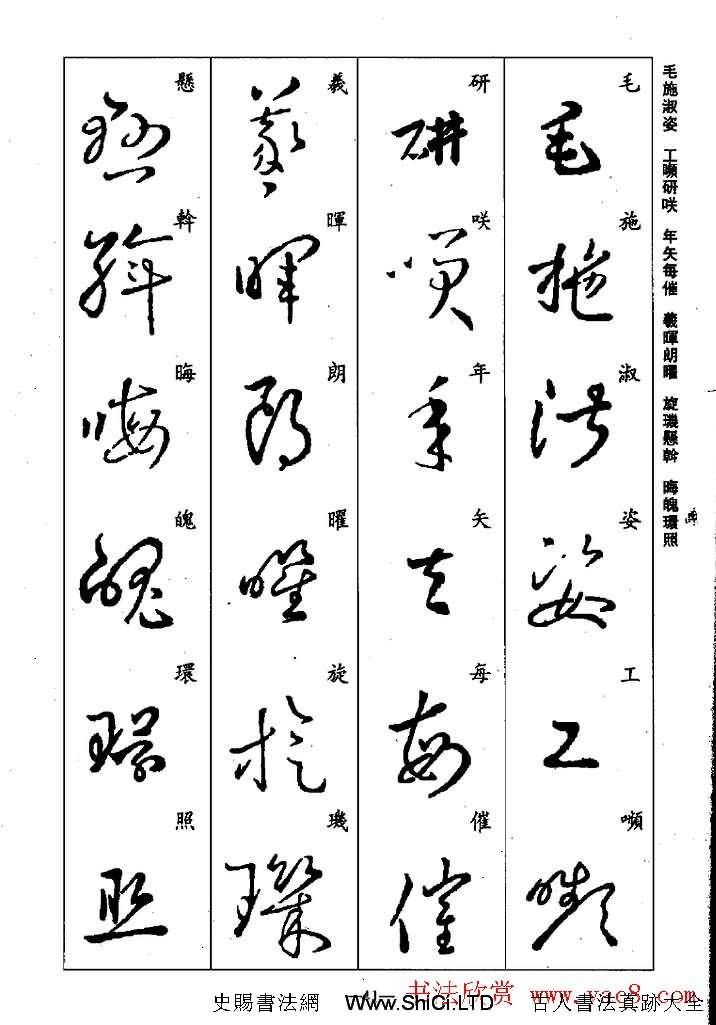 毛施淑姿 工嚬研咲 年矢每催 羲暉朗曜 旋璣懸斡 晦魄環照
毛
施
淑
姿
工
嚬
研
咲
年
矢
每
催
義
暉
朗
曜
旋
璣
懸
斡
晦
魄
環
照
书法欣赏 www.yac8.com
史賜書法網 WWW.ShiCi.LTD 古人書法真跡大全